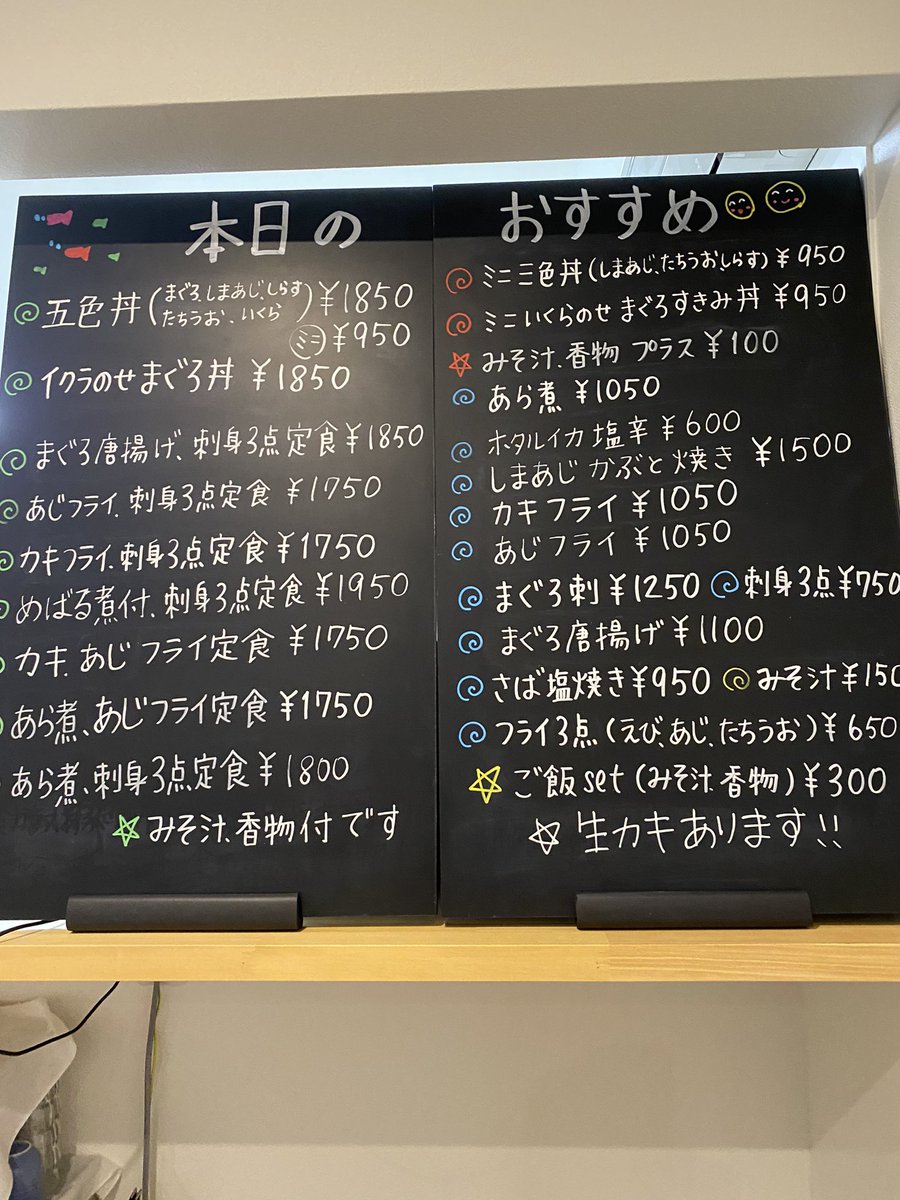 本日の
五色丼(まぐろ、しまあじ、しらす
たちうお、いくら)¥1850
ミニ ¥950
イクラのせまぐろ丼 ¥1850
まぐろ唐揚げ、刺身3点定食 ¥1850
あじフライ、刺身3点定食 ¥1750
カキフライ、刺身3点定食 ¥1750
めばる煮付、刺身3点定食 ¥1950
カキ、あじフライ定食 ¥1750
あら煮、あじフライ定食 ¥1750
あら煮、刺身3点定食 ¥1800
☆みそ汁、香物付です
おすすめ
ミニ三色丼(しまあじ、たちうお、しらす)¥950
ミニいくらのせまぐろすきみ丼 ¥950
☆みそ汁、香物 プラス ¥100
あら煮 ¥1050
ホタルイカ塩辛 ¥600
しまあじ かぶと焼き ¥1500
カキフライ ¥1050
あじフライ ¥1050
まぐろ刺 ¥1250 刺身3点 ¥750
まぐろ唐揚げ ¥1100
さば塩焼き ¥950 みそ汁 ¥150
フライ3点(えび、あじ、たちうお)¥650
☆ご飯set(みそ汁、香物)¥300
☆生カキあります!!